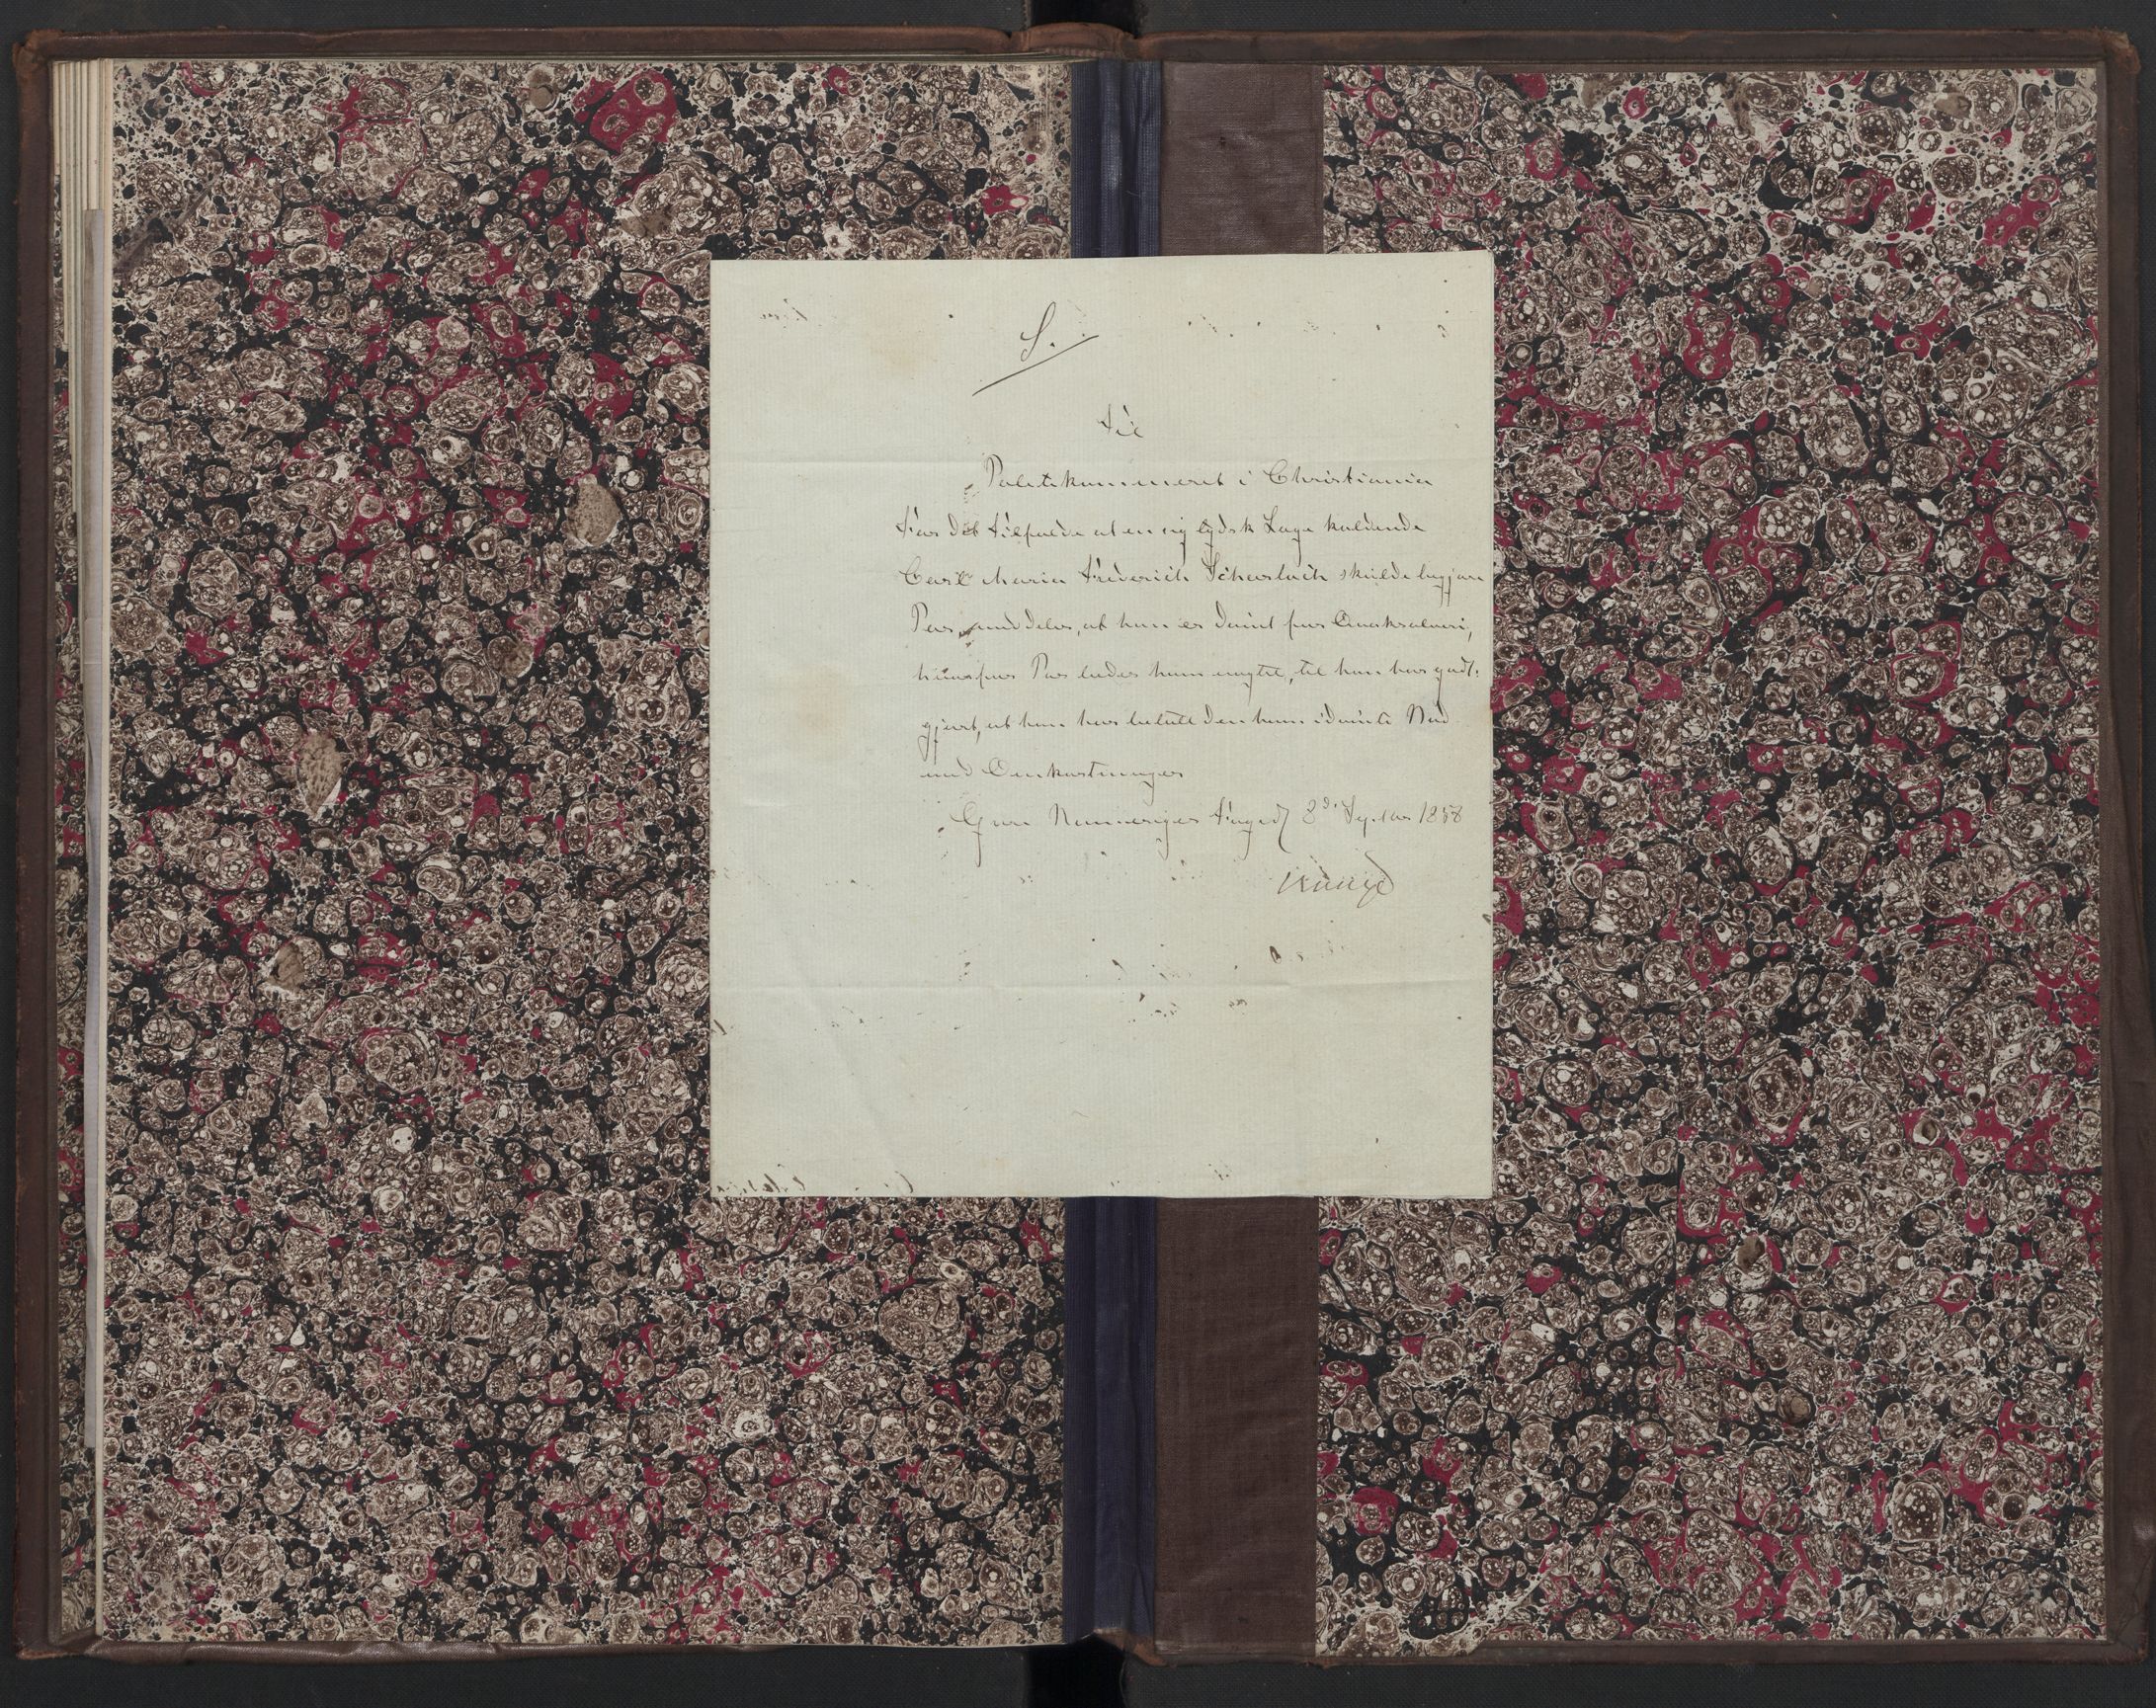 S.
Til
Politikammeret i Christiania
For det Tilfælde at en sig tydsk Læge kaldende
Carl Maria Friderich Scharlach skulde begjære
Pas meddeles, at han er dømt for Qvaksalveri,
hvorfor Pas bedes ham nægtet, til han har godt-
gjort, at han har betalt den ham idømte Mulct
med Omkostninger
Øvre Rommeriges Fogedi 8de Septbr 1858